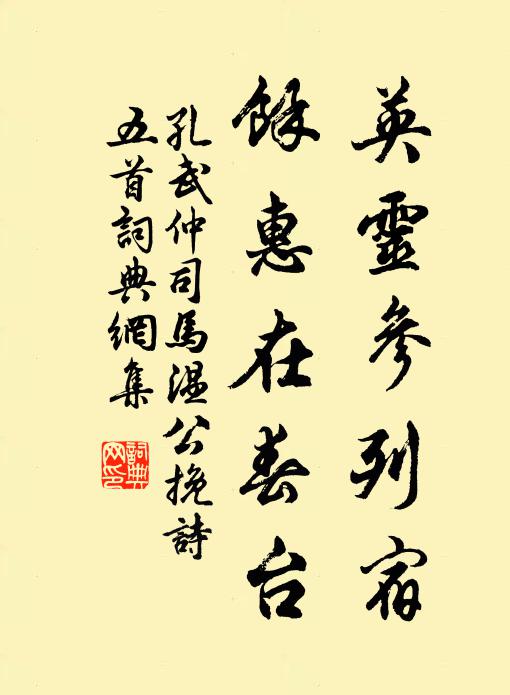 英靈參列宿
餘惠在春台
孔武仲司馬溫公挽詩
五首詞典網集
詞典网印